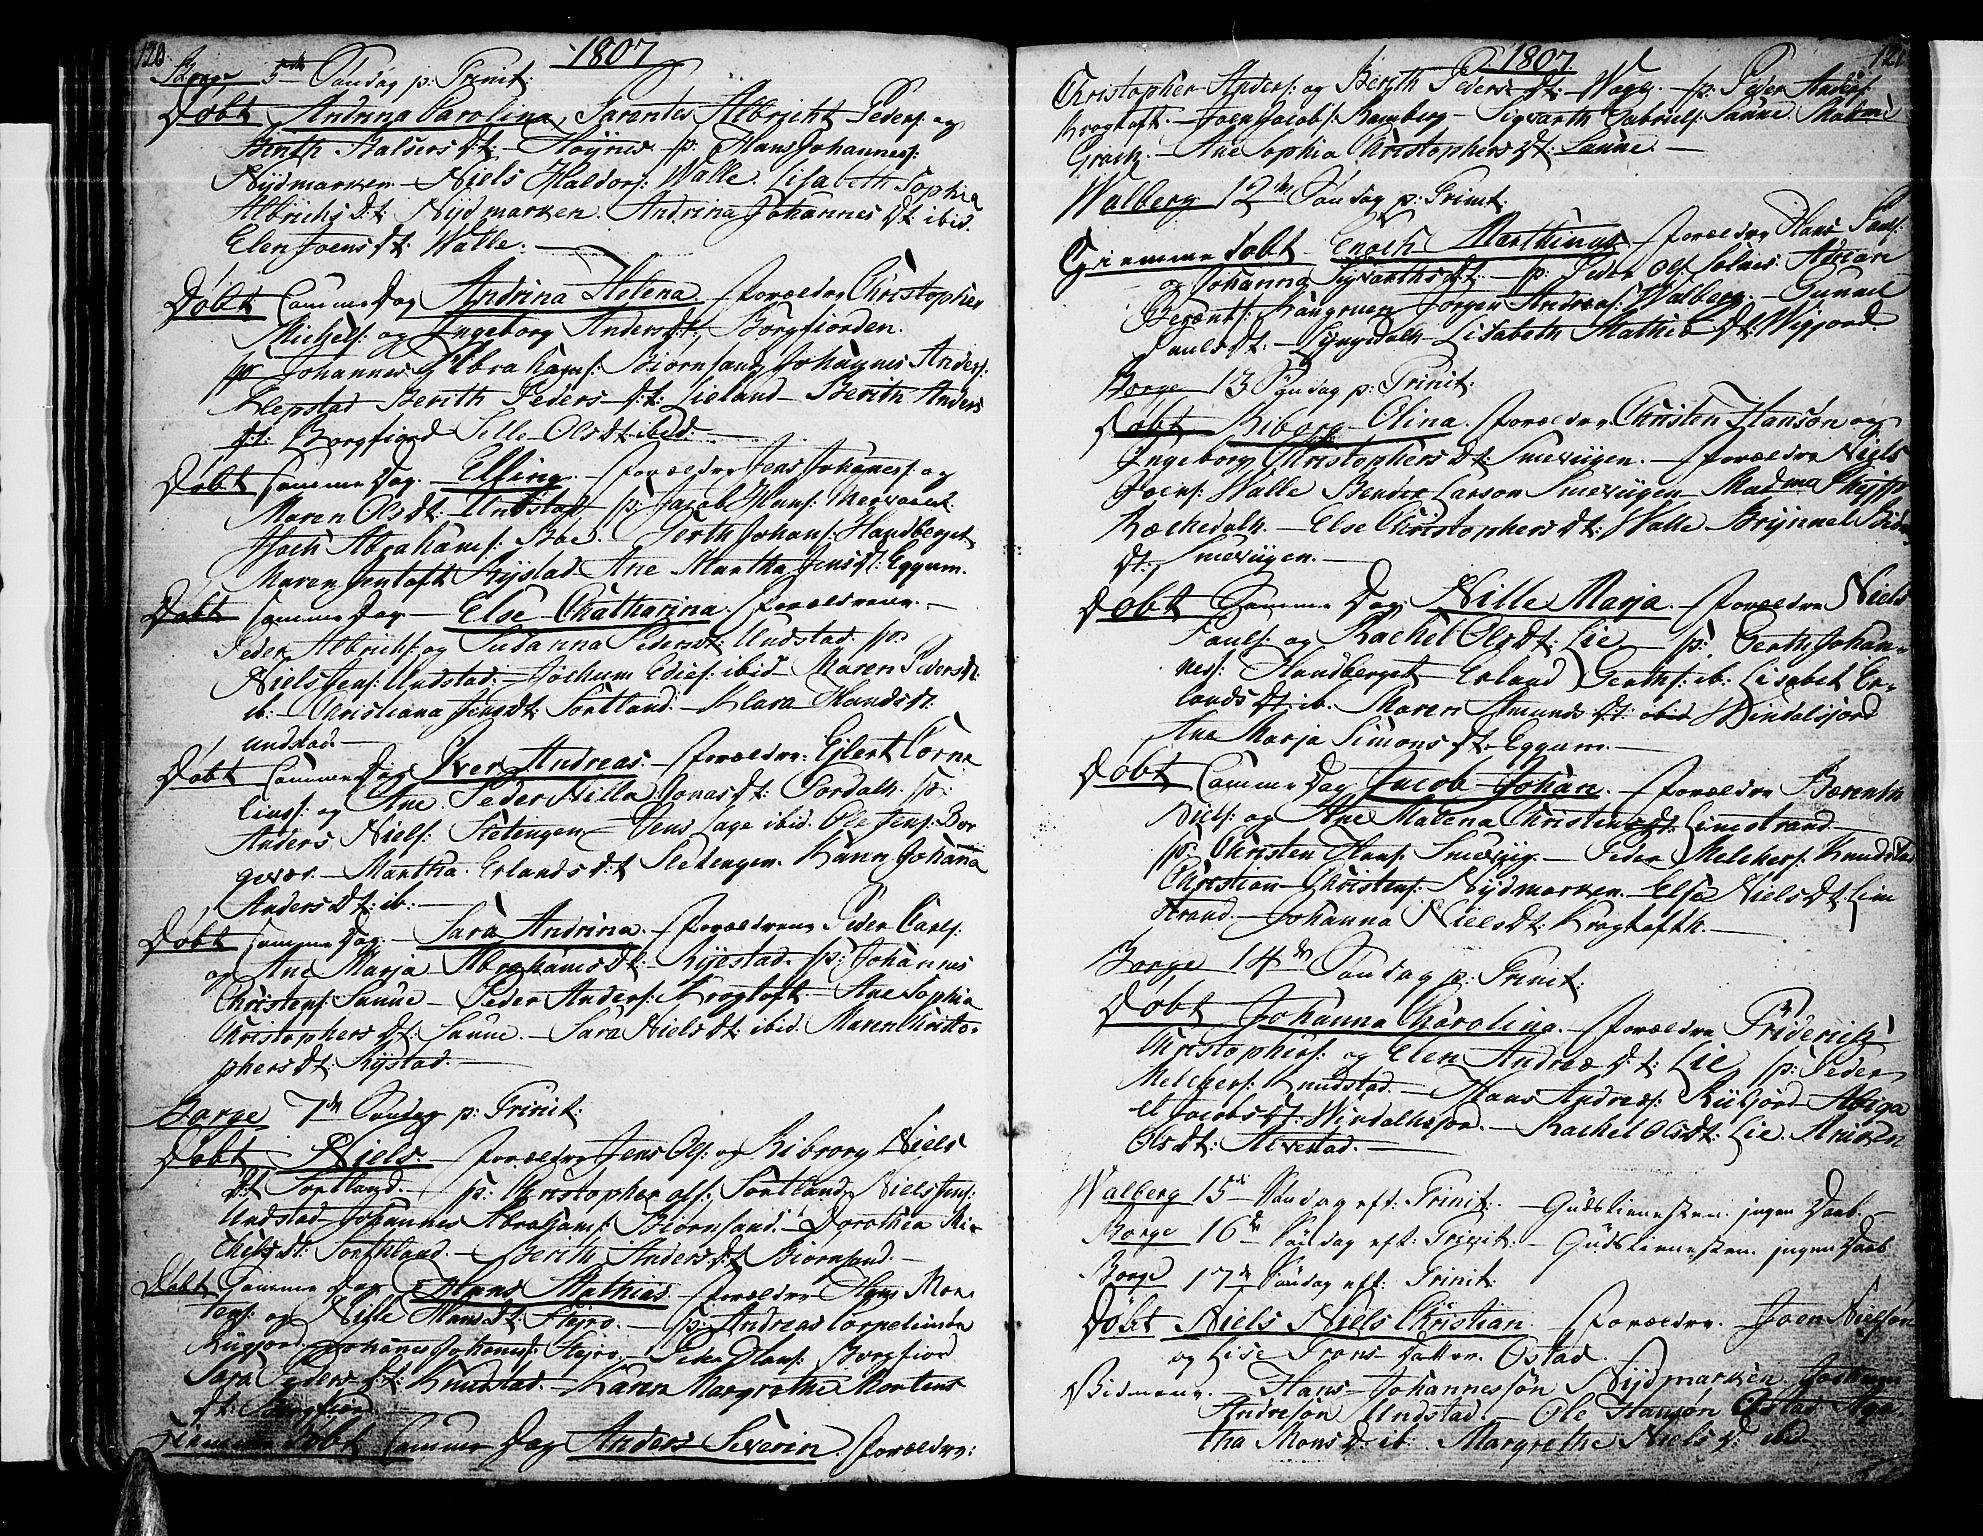 120.
1807
Borge 5te Søndag p: Trinit:
Døbt Andrina Carolina, Parentes Albricht Peders: og
Birith Halsers dt: Høynes p: Hans Johannes:
Nÿdmarken – Niels Haldors: Walle. Lisabeth Sophia
Albrichs dt: Nÿdmarken. Andrina Johannes dt: ibid.
Elen Joens dt: Walle. –
Døbt samme Dag Andrina Helena forældre Christopher
Michels: og Ingeborg Anders dt: Borgfiorden.
sp Johannes Abrahams: Biørnsand Johannes Anders:
Klepstad Berith Peders dt: Lieland – Berith Anders
dt: Borgfiord Sille Ols dt ibid: –
Døbt samme Dag. Elling – forældre Jens Johanes: og
Maren Ols dt: Undstad p: Jacob Hans:
Abrahams: Boe. Gerth Johans: Handberget
Maren Jentoft Rÿstad Ane Martha Jens dt: Eggum.
Døbt samme Dag – Else Chatharina. forældrene. –
Peder Albrichs: og Susanna Peders dt: Undstad p:
Niels Jens: Undstad – Jochum Edies: ibid – Maren Peders dt:
ib: – Christiana Jens dt: Sortland. – Klara Hands dt:
undstad. –
Døbt samme Dag Iver Andreas – forældre: Ejlert Corne
lius: og Ane Peder Nilla Jonas dt: Pordalk. p:
Anders Niels: Stetingen – Jens Aage ibid. Ole Jens: Bor
gevær. – Martha Erlands dt Stetengen. Karen Johana
Anders dt: ib: –
Døbt samme Dag. – Sara Andrina. – forældrene Peder Carls:
og Ane Marja Abrahams dt: Rÿestad. p: Johannes
Christens: Sanne – Peder Anders: Krogtoft – Ane Sophia
Christophers dt: Sanne. – Sara Niels dt: ibid. Maren Christo-
phers dt: Rÿstad. –
Borge 7de Søndag p: Trinit:
Døbt Niels. – forældre Jens Ols: og Riborg Niels
dt Sortland. – p: Christopher Ols: Sortland, Niels Jens:
Undstad Johannes Abrahams: Biørnsand. – Dorothea Mi-
chels dt: Sortland. – Berith Anders dt Biørnsand –
Døbt samme Dag Hans Mathias – forældre Hans Mor-
tens: og Nille Hans dt: Hejro. – p: Andreas Corneliusen
Rüfjord. Johanes Johans: Hejro – Peder Hans: Borgfiord
Sara Peders dt: Knudstad. – Karen Margrethe Mortens
dt: Borgfiord –
Hiemme døbt samme Dag Anders Severin. forældre:
1807
121
Christopher Anders: og Berith Peders dt: Wage. – p: Peder Anders:
Krogtoft. – Joen Jacobs: Ramberg – Sigvarth Gabriels: Sanne Malene
– Ane Sophia Christophers dt: Sanne. –
Walberg 12te Søndag p: Trinit:
Hiemme døbt Enoch Marthinus – forældre Hans Pauls:
og Johanna Sigvarths dt: – p: Peder Ols: Solnes Adrian
Berents: Jørgen Andreas: Walberg. – Gunnel
Pauls dt: – Lÿngedalk – Lisabeth Mathis dt: Wigjord –
Borge 13 Søndag p: Trinit:
Døbt Riborg Olina. – forældre: Christen Hansøn og
Ingeborg Christophers dt: Smevügen. – forældre Niels
Joens: Walle Bender Larson Smevügen – Madme
Ræchedalk. – Else Christophers dt: Walle Brÿnnel
dt: Smevügen. –
Døbt samme Dag Nille Marja. – forældre Niels
Pauls: og Rachel Ols dt: Lie – p: Gerth Johan-
nes: Handberget – Erland Gerths: ib: Lisabet Er-
lands dt ib. Maren Amunds dt: Windalsjord
Ane Marja Simons dt. Eggum. –
Døbt samme Dag Jacob Johan. – forældre Bærent
Niels: og Ane Malena Christens dt: Limstrand –
p: Christen Hans: Smevüg. – Peder Melchers: Knudstad
Christian Christens: Nÿdmarken. – Else Niels dt: Lim
strand. – Johanna Niels dt: Krogtofth. –
Borge 14de Søndag p: Trinit:
Døbt Johanna Charolina. – forældre Friderich
Christophers: og Elen Andreæ dt: Lie p: Peder
Melchers: Knudstad. – Hans Andreas: Rüfjord – Abiga
el Jacobs dt: Windalssjor. – Rachel Ols dt: Lie.
Ols dt: Alvestad. –
Walberg 15de Søndag eft: Trinit. – Gudstienesten. ingen Daab. –
Borge 16de Søndag eft: Trinit. – Gudstienesten ingen Daab
Borge 17de Søndag eft: Trinit:
Døbt Niels Niels Christian. – forældre. Joen Nielsøn
og Lise Trons Datter. Ostad.
Vidmene. – Hans Johannessøn Nÿdmarken. Jochum
Andresøn Undstad. – Ole Hansøn Ostad Aga
tha Mons dt: ib. Margrethe Niels d: ibid